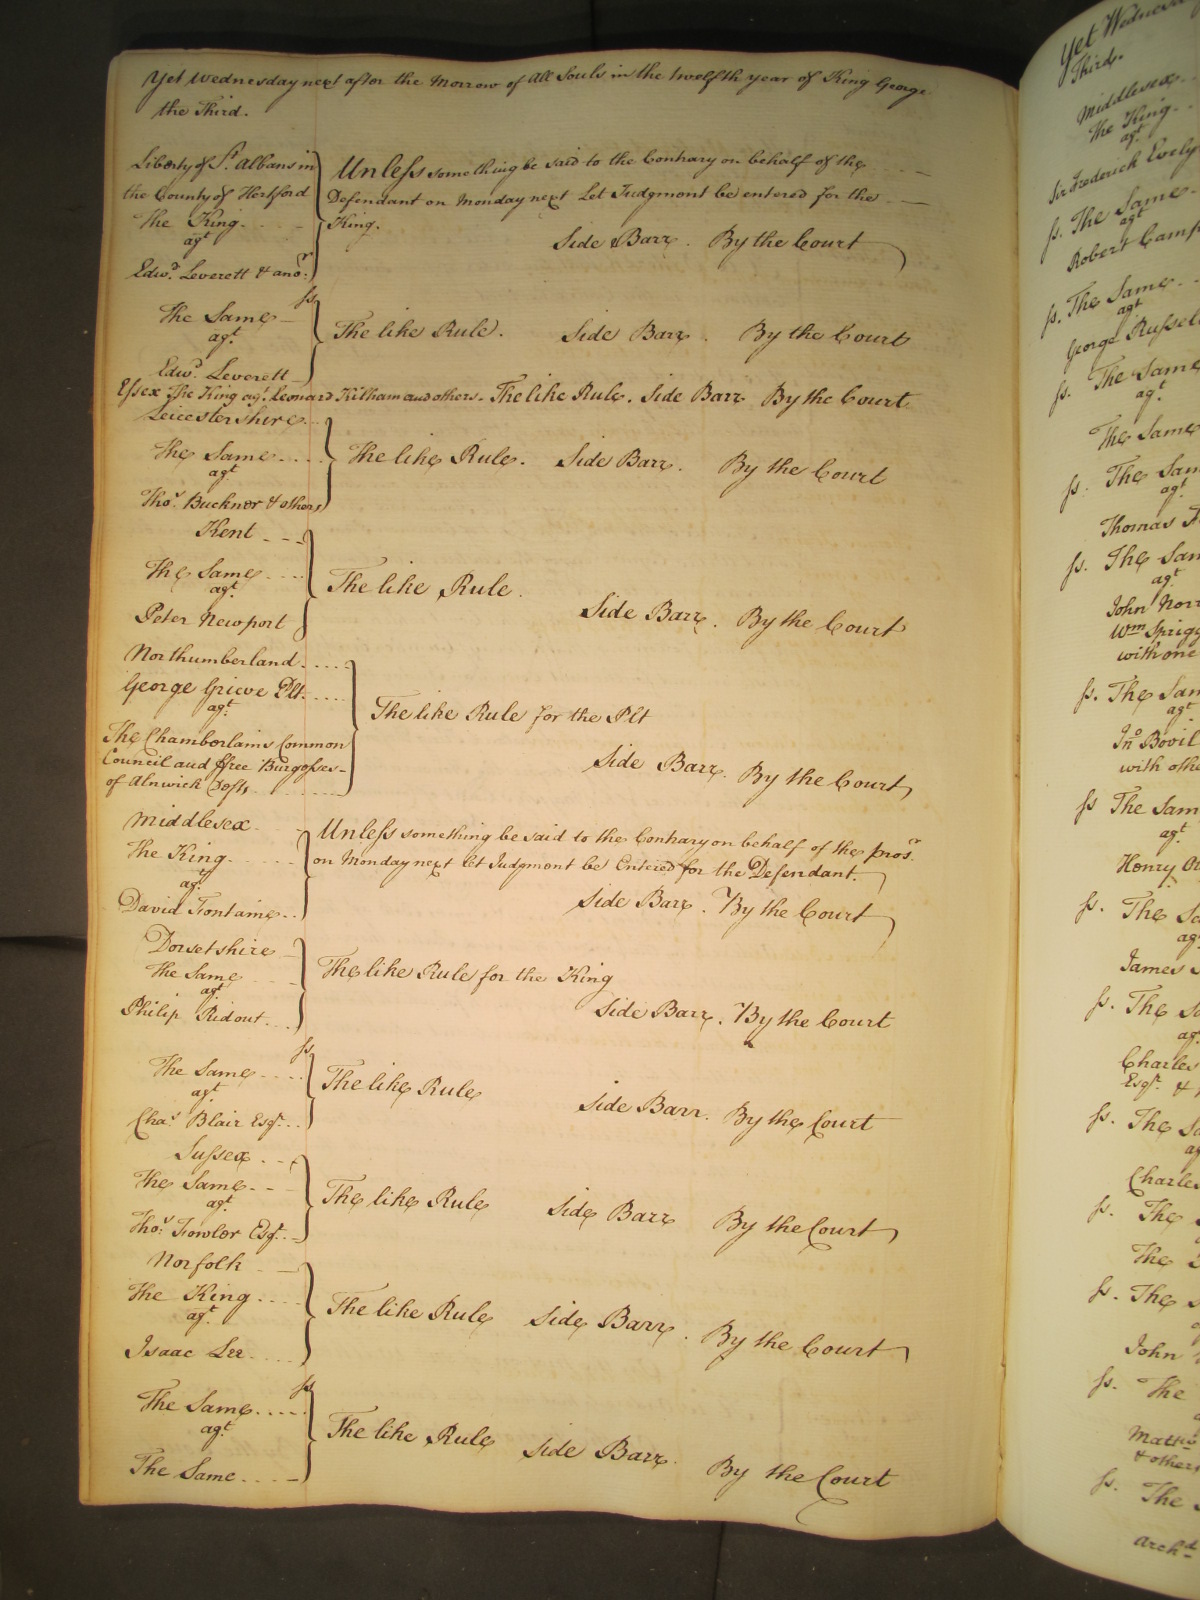 Yet Wednesday next after the Morrow of All Souls in the twelfth year of King George
the Third.
Liberty of St. Albans in
the County of Hertford
The King
agt
Edwd. Leverett & anor.
Unless something be said to the Contrary on behalf of the
Defendant on Monday next Let Judgment be entered for the
King.
Side Barr. By the Court
ss
The Same
agt.
Edwd. Leverett
The like Rule. Side Barr. By the Court
Essex The King agt. Leonard Kilham and others. The like Rule. Side Barr By the Court
Leicestershire
The Same
agt
Thos. Buckner & others
The like Rule. Side Barr. By the Court
Kent
The Same
agt.
Peter Newport
The like Rule.
Side Barr. By the Court
Northumberland
George Grieve Plt.
agt.
The Chamberlains Common
Council and ffree Burgesses
of Alnwick Defts.
The like Rule for the Plt
Side Barr. By the Court
Middlesex
The King
agt.
David Fontaine
Unless something be said to the Contrary on behalf of the prosr.
on Monday next let Judgment be Entered for the Defendant.
Side Barr. By the Court
Dorsetshire
The Same
agt
Philip Ridout
The like Rule for the King
Side Barr. By the Court
ss
The Same
agt.
Chas. Blair Esqr.
The like Rule
Side Barr. By the Court
Sussex
The Same
agt.
Thos. Fowler Esqr.
The like Rule Side Barr By the Court
Norfolk
The King
agt.
Isaac Lee
The like Rule Side Barr. By the Court
ss
The Same
agt.
The Same
The like Rule Side Barr. By the Court
Yet Wednesday
Third.
Middlesex
The King
agt
Sir Frederick Evely
ss. The Same
agt
Robert Camp
ss. The Same
agt
George Russel
ss. The Same
agt.
The Same
ss. The Sam
agt
Thomas
ss. The Sam
agt
John Norr
Wm Sprigg
with one
ss. The Sam
agt
Jno Bovil
with othe
ss The Sam
agt
Henry
ss. The Sa
agt
James
ss. The Sa
agt
Charles
Esqr. &
ss. The Sa
ag
Charles
ss. The
The
ss. The
John
ss. The
Matt
& others
ss. The
Archd